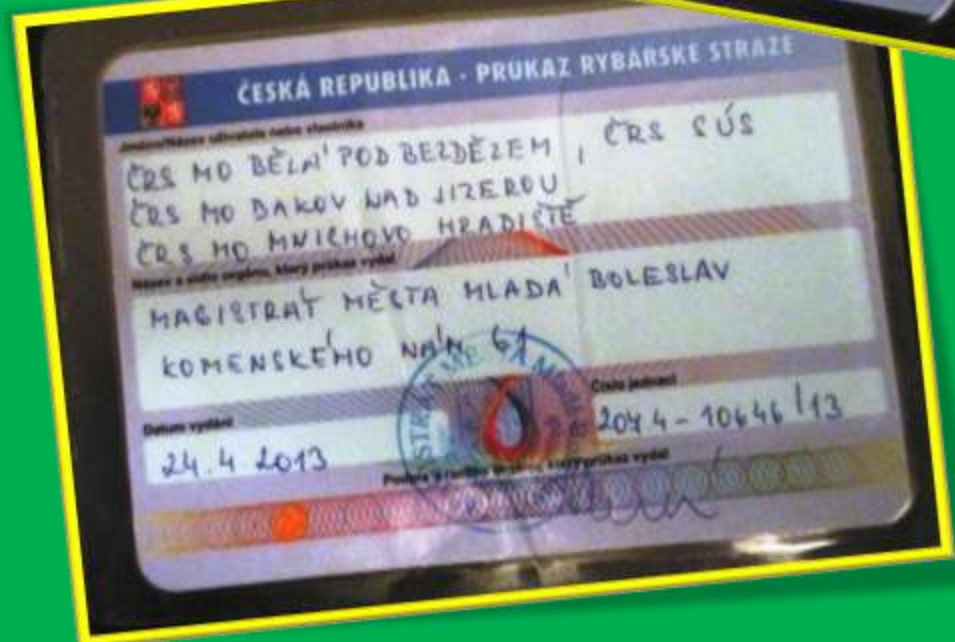 ČESKÁ REPUBLIKA - PRŮKAZ RYBÁŘSKÉ STRÁŽE
Jméno/Název uživatele nebo vlastníka
ČRS MO BĚLÁ POD BEZDĚZEM , ČRS SÚS
ČRS MO BAKOV NAD JIZEROU
ČRS MO MNICHOVO HRADIŠTĚ
Název a sídlo orgánu, který průkaz vydal
MAGISTRÁT MĚSTA MLADÁ BOLESLAV
KOMENSKÉHO NÁM 61
Datum vydání
Číslo jednací
24.4 2013
-10646/13
který průkaz vydal